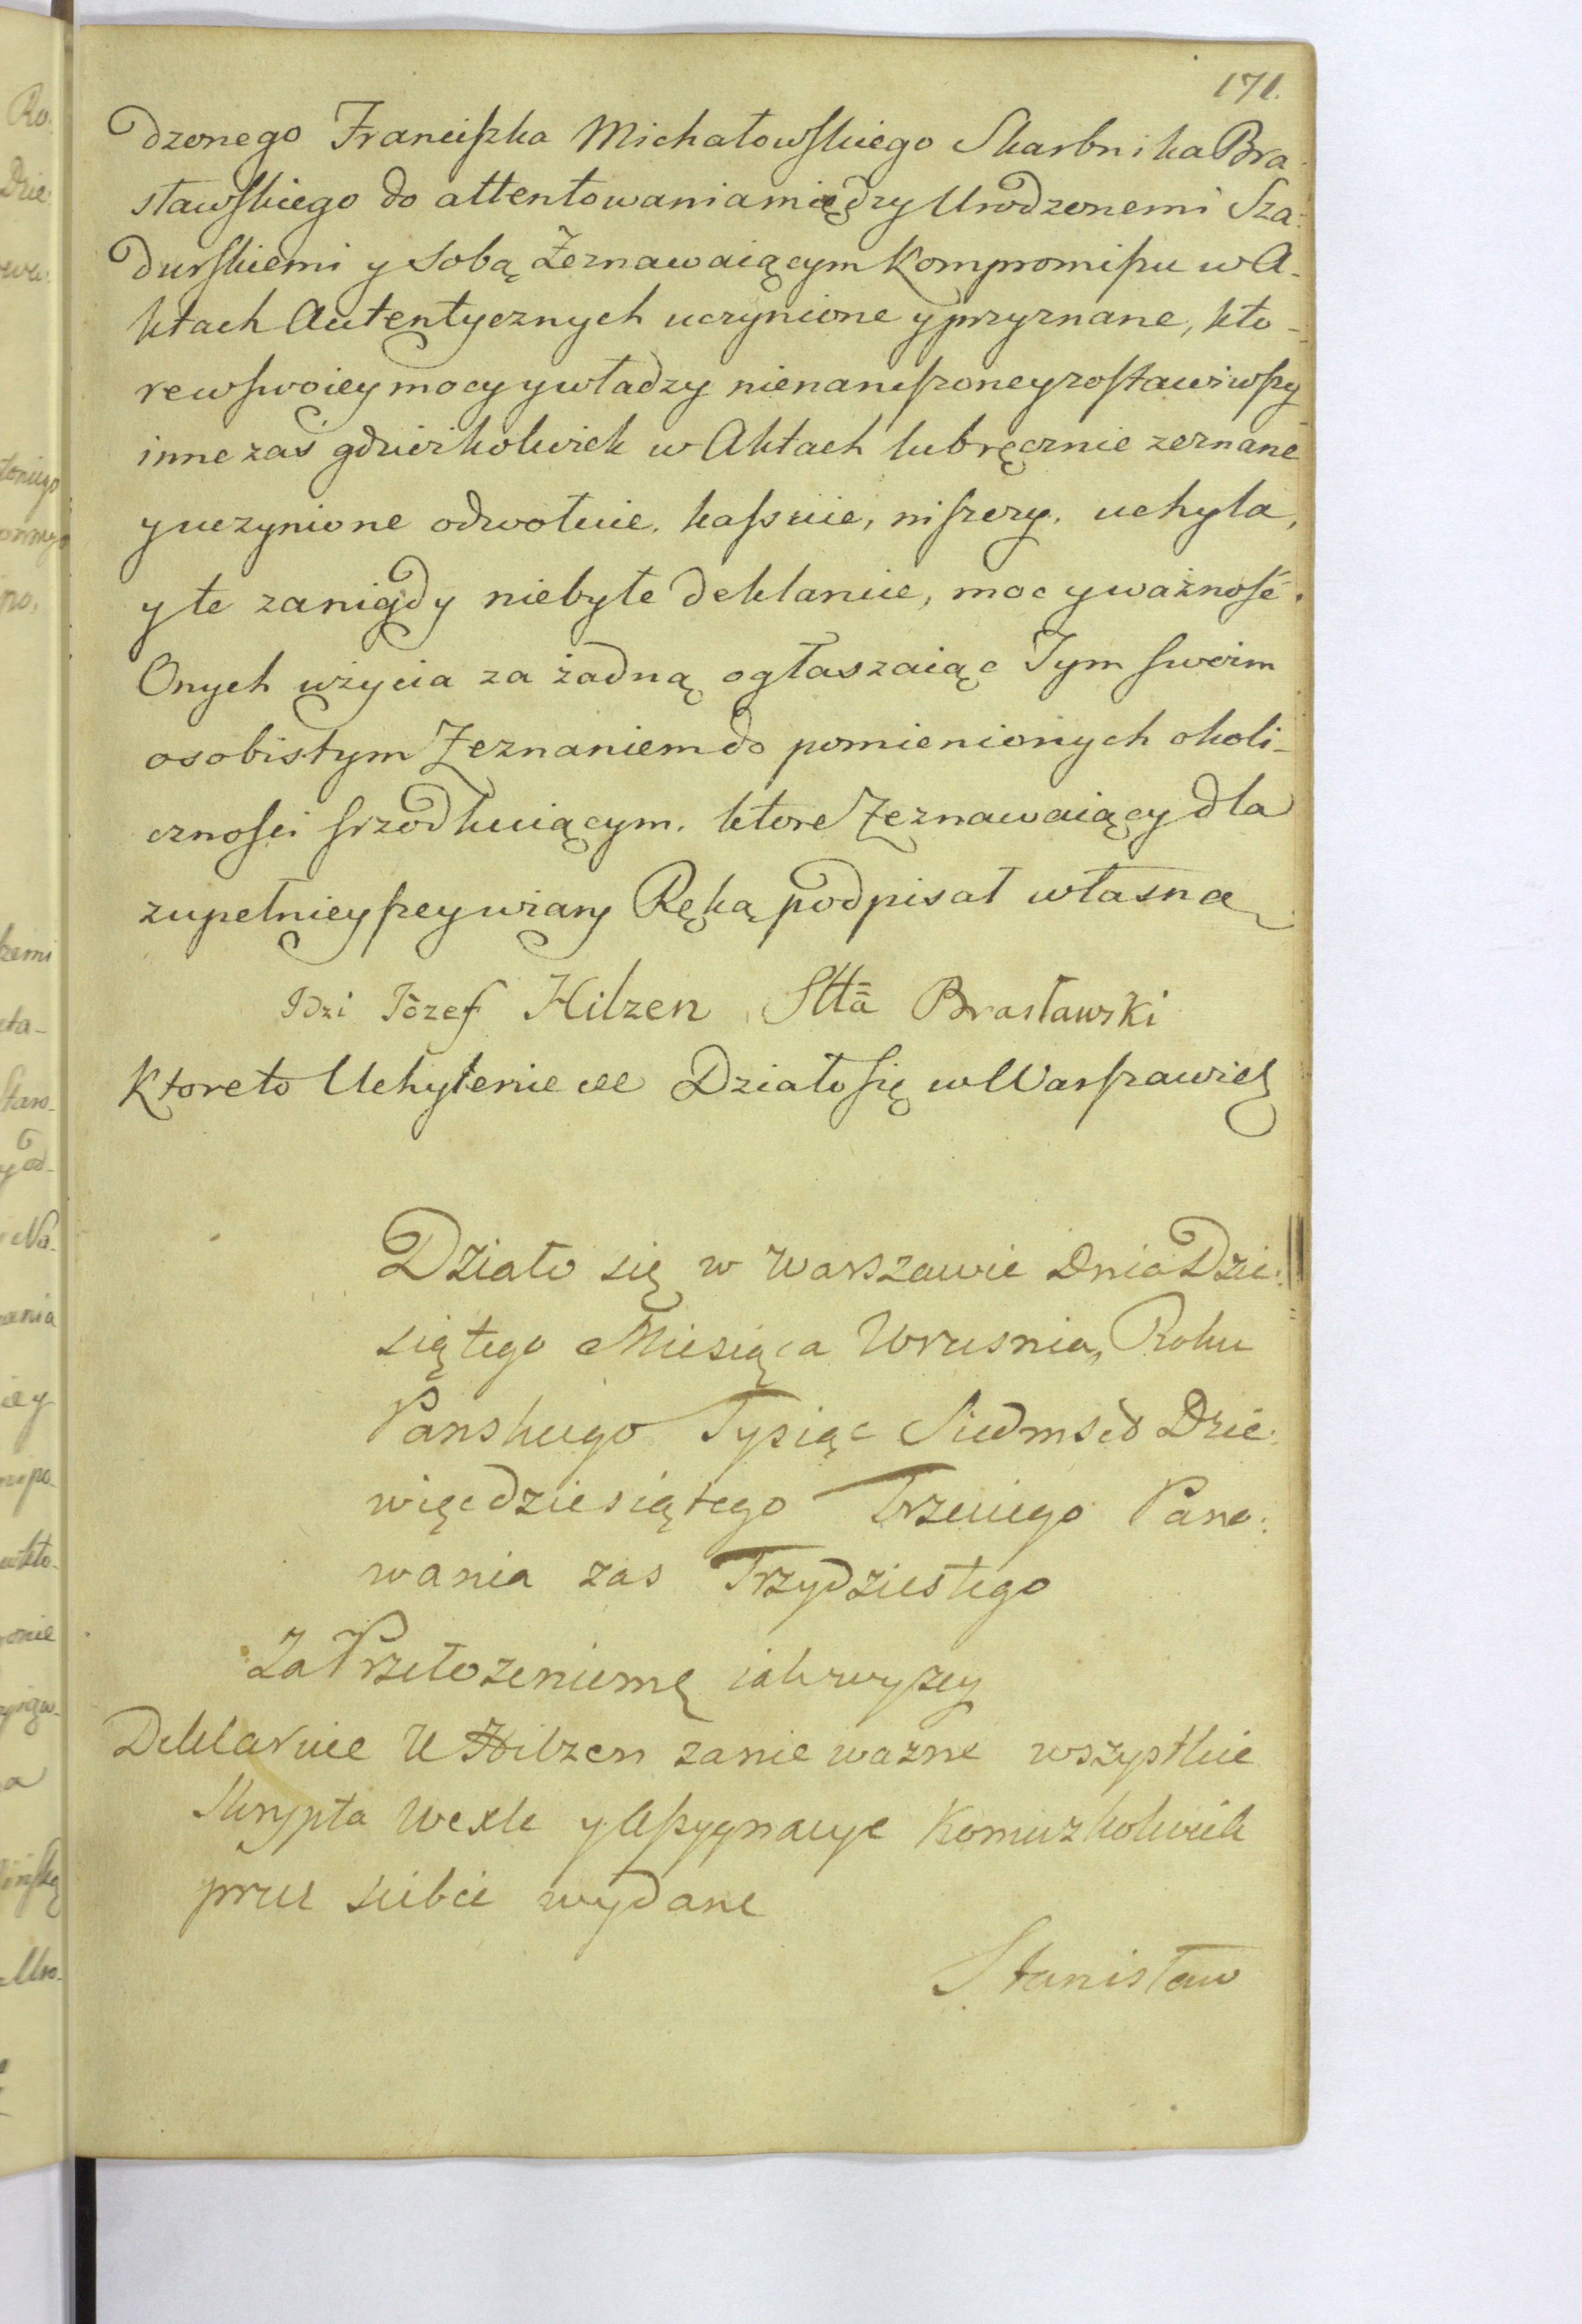 171.
dzonego Franciszka Michałowskiego Skarbnika Bra
sławskiego do attentowania między Urodzonemi Sza:
durskiemi y sobą Zeznawaiącym Kompromissu w A-
ktach Autentycznych uczynione y przyznane, kto-
re w swoiey mocy y władzy nienaruszoney zostawiwszy
inne zaś gdzieżkolwiek w Aktach lub ręcznie zeznane
y uczynione odwołuie, kassuie, niszczy, uchyla,
y te za nigdy niebyłe deklaruie, moc y ważność
Onych użycia za żadną ogłaszaiąc Tym swoim
osobistym Zeznaniem do pomienionych okoli-
cznosci srzodkuiącym. ktore Zeznawaiący dla
zupełnieyszey wiary Ręką podpisał własną
Idzi Józef Hilzen Stta Brasławski
Ktore to Uchylenie etc Działo się w Warszawie
Działo się w Warszawie Dnia Dzie:
siątego Miesiąca Wrusnia, Roku
Panskiego Tysiąc Siedmset Dzie:
więcdziesiątego Trzeciego Pano:
wania zas Trzydziestego
Za Przełozeniem ę iak wyzey
Deklaruie U Hilzen za nie wazne wszystkie
Skrypta Wexle y Assygnacye Komuzkolwiek
przez siebie wydane
Stanisław